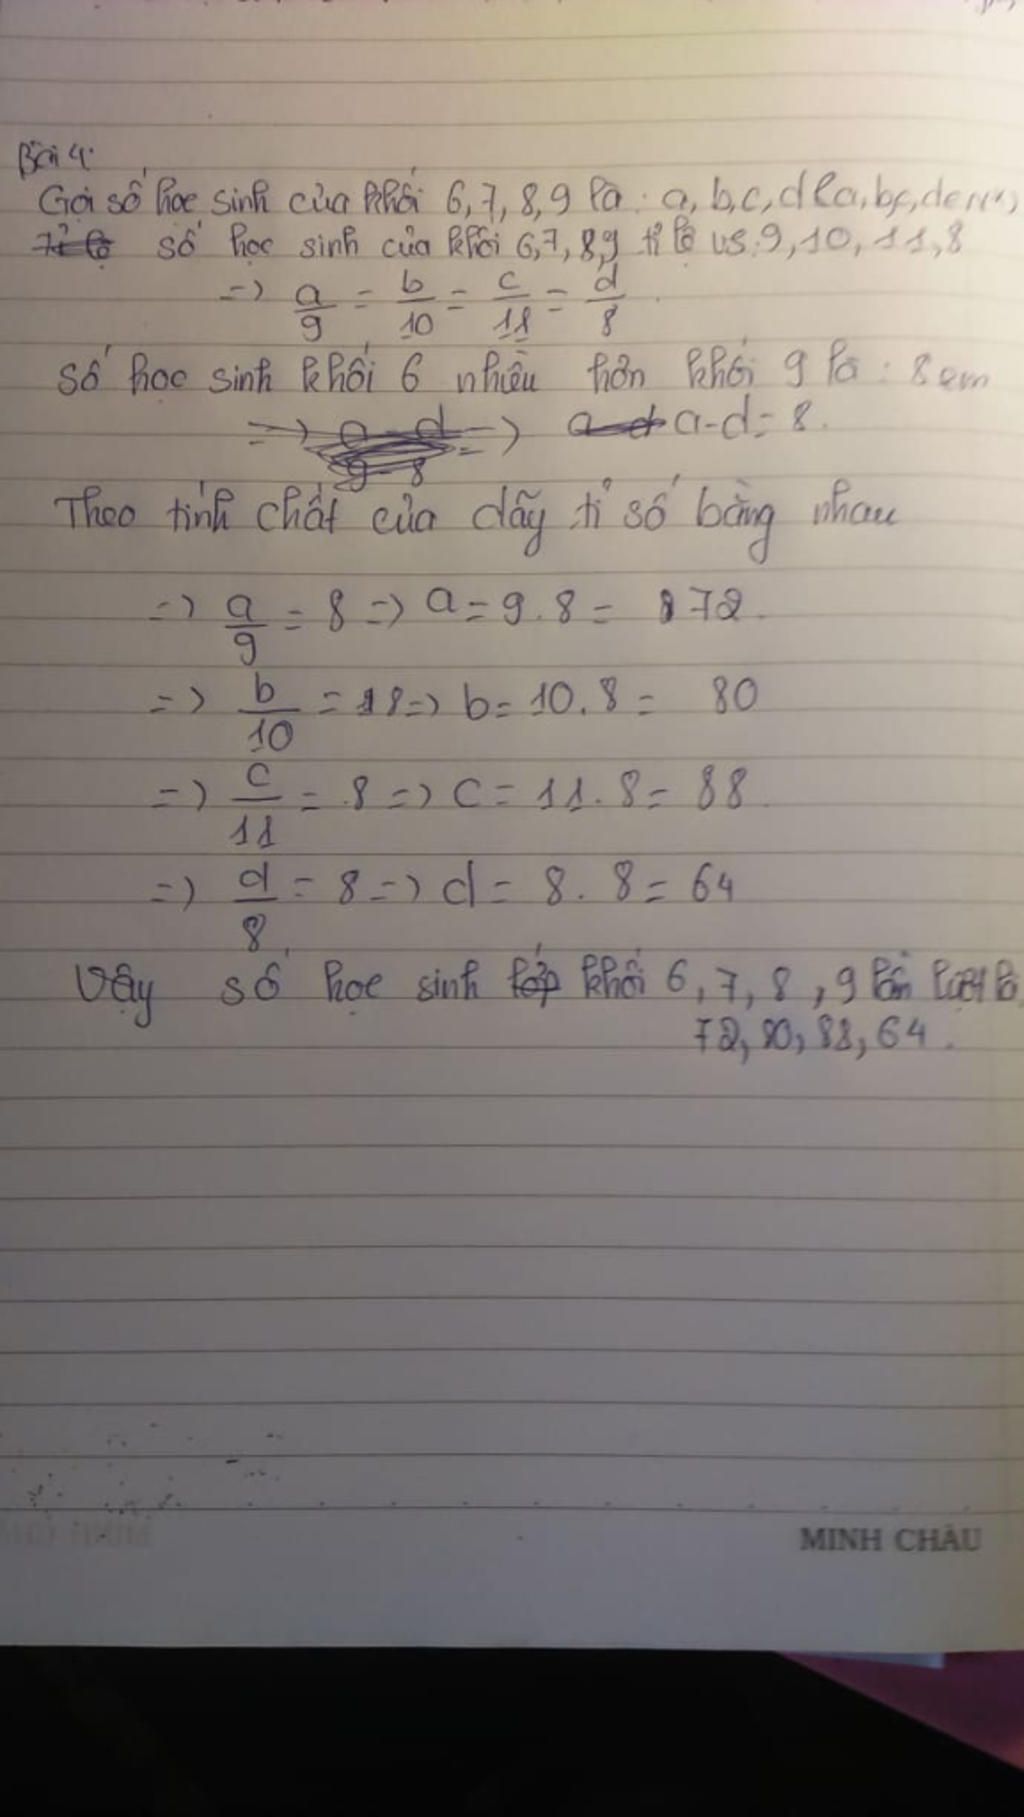 Bài 4:
Gọi số học sinh của khối 6,7,8,9 là: a, b, c, d (a, b, c, d ∈ N*)
số học sinh của khối 6,7,8,9 tỉ lệ vs: 9, 10, 11, 8
=> a/9 = b/10 = c/11 = d/8.
Số học sinh khối 6 nhiều hơn khối 9 là: 8 em
=> a-d = 8.
Theo tính chất của dãy tỉ số bằng nhau
=> a/9 = 8 => a = 9.8 = 72.
=> b/10 = 8 => b = 10.8 = 80
=> c/11 = 8 => c = 11.8 = 88.
=> d/8 = 8 => d = 8.8 = 64
Vậy số học sinh khối 6, 7, 8, 9 lần lượt là
72, 80, 88, 64.
MINH CHÂU